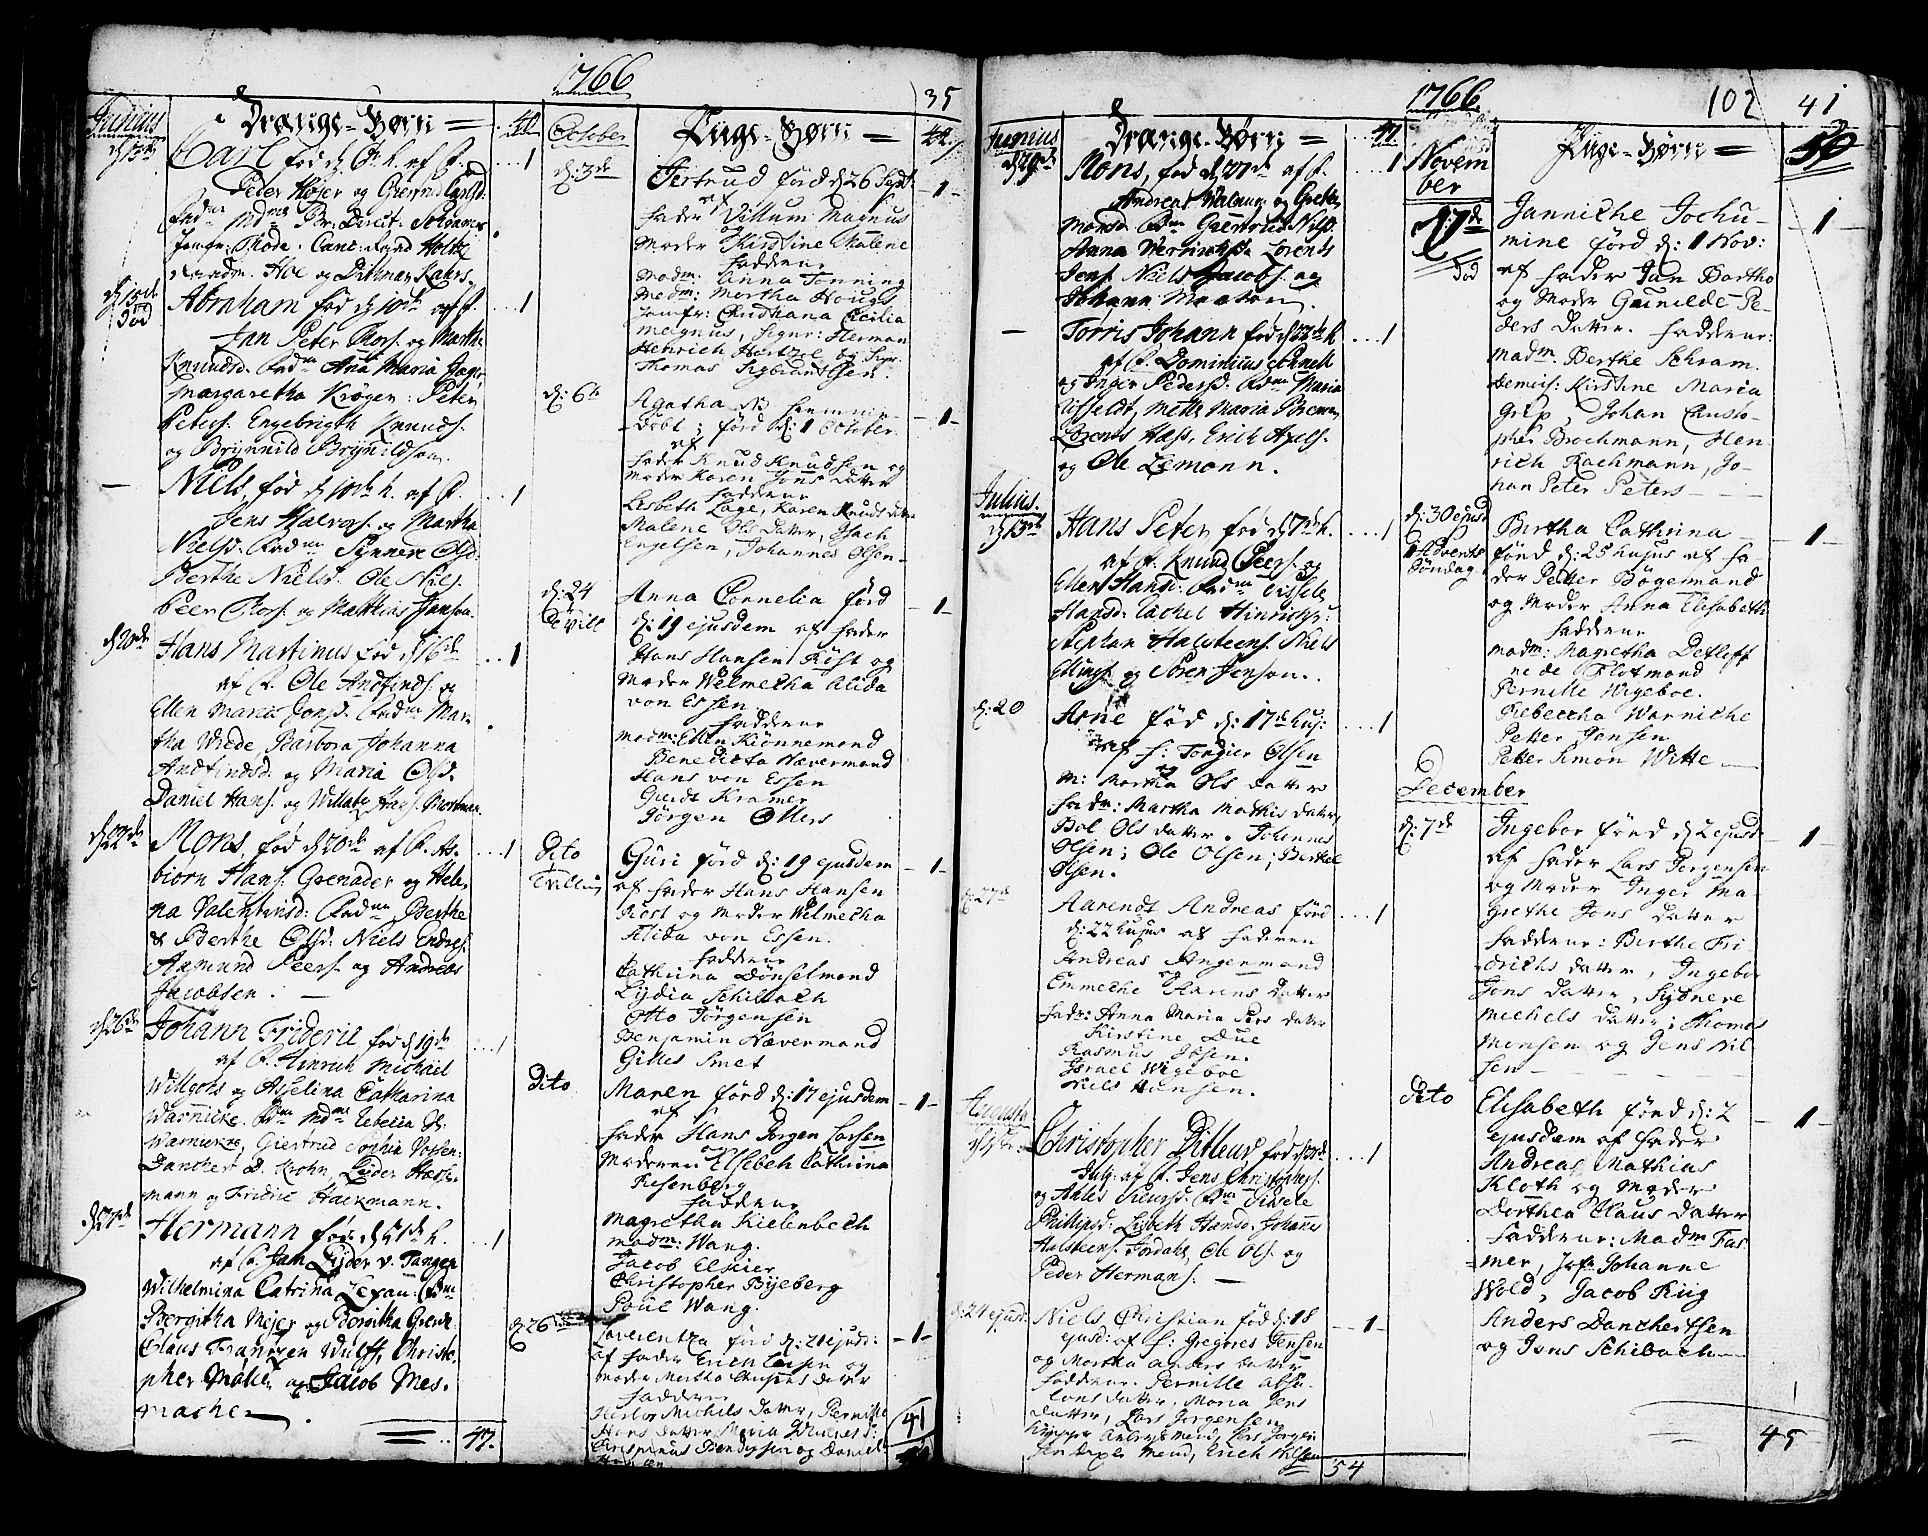 1766
35
Junius
Drenge-Børn
d 13de
Carl fød d 6t h. af P.
1
Peter Højer og Giertrud Carlsd.
Jomfr: Rode. Cant: Holtz
og Ditmar Kahrs.
d 15de
Død
Abraham fød d 10de af P.
1
Jan Peter Rors. og Marth.
Knudsd. Fadne Ana Maria
Margaretha Krøger. Peter
Peters. Engebrigth Knuds.
og Brynnild Brynildsen.
Niels, fød d 10de h. af P.
1
Jens Halvors. og Martha
Nielsd. Fadne Synnere Olsd.
Berthe Nielsd. Ole Niels.
Peer Rors. og Matthias Jansen.
d 20de
Hans Martinus fød d 16de
1
af P. Ole Andfinds. og
Ellen Maria Jonsd. Fadne Mar-
tha Wrede Barbora Johanna
Andfindsd. og Maria Olsd.
Daniel Hans. og Willatz Hans. Mortman.
d 22de
Mons, fød d 20de af P. As-
1
biørn Hans. Grenader og Hele-
na Valentinsd: Fadne Berthe
& Berthe Olsd. Niels Endres.
Aasmund Peers. og Andreas
Jacobsen.
d 26de
Johann Frideric fød d 19de
1
af P. Hinrich Michael
Willgohs og Asselina Catharina
Warnicke. Fadne Mdme Rebecca de
Warnicke, Giertrud Sophia Vossen:
Dancker D. Krohn, Lyder Hasse-
mann og Frideric Hackmann.
d 27de
Hermann fød d 21de h.
1
af P. Jan Lyder v. Tangen
Wilhelmina Catrina Lexau. Fadne
Bergitha Mejer og Dorothea Greve
Claus Frantzen Wulff, Christo-
pher Møller og Jacob Mes-
macher
47.
October
Piige-Børn
d: 3de
Gertrud førd d 26 Sept:
1
fader Villum Magnus
og
Moder Kirstine Malene
faddene
Madm. Anna Tonning
Madm: Martha Hougs
Jomfr: Cecilia
Magnus, Signr: Herman
Henrich Hartzoe og Signr.
Thomas
d: 6te
Agatha N hiemme-
1
Døbt; førd d: 1 October.
af
fader Knud Knudsen og
Moder Karen Jons Datter
faddene
Lisbeth Lage, Karen Knuds datter
Malene Ols Datter, Isach
Engelsen, Johannes Olsen
d: 24
Tvill
Anna Cornelia førd
1
d: 19 ejusdem af fader
Hans Hansen Røst og
Moder Welmecha Alida
von Essen.
faddene
Madm: Ellen Kiønnemand
Benedicta Nævermand
Hans von Essen
Gierdt Kramer
Jørgen Otters
Dito
Tvilling
Guri førd d: 19 ejusdem
1
af fader Hans Hansen
Rost og Moder Welmecha
Alida von Essen.
faddene
Cathrina Dønselmand
Lydia Schibach
Otto Jørgensen
Benjamin Nævermand
Gilles Smet
Dito
Maren førd d: 17 ejusdem
1
af
fader Hans Jørgen Larsen
Moderen Elsebeh Cathrina
Risenberg
faddene
Magretha Kielenbech
Madm: Wang.
Jacob Elsier
Christopher Byeberg
Poul Wang.
d: 26
Laverentza førd d: 21 ejusd:
1
af fader Erich og
Moder Martha datter
faddene
Michels datter, Pernille
Hans datter Maria
og Daniel
Hansen
41
1766
102
41
Junius
Drenge-Børn
41.
d 29de
Mons, fød d 27de af P.
1
Andreas og Grethe
Monsd. Fadne Giertrud Nilsd.
Anna Lorents
Jens. Niels Jacobs. og
Johann Monsen.
Torris Johann fød d 22de h.
1
af P. Dominicus Schnell
og Inger Pedersd. Fadne Maria
Uffeldt, Mette Maria Brem,
Lorents Hass, Erich Axels.
og Ole Lemann.
Julius.
d 13de
Hans Peter fød d 7de h.
1
af P. Knud Peers. og
Ellen Hansd: Fadne Sissele
Hansd: Rachel Hinrichs:
Stephan Halsteens. Niels
Ellings. og Søren Jenson.
d: 20
Arne fød d: 17de huj:
1
af f: Torgier Olsen
og
M: Martha Ols datter
fadr: Martha Mathis datter,
Bol Ols datter. Johannes
Olsen; Ole Olsen; Berthel
Olsen.
d: 27de
Aarendt Andreas førd
1
d: 22 hujus af faderen
Andreas Angenmand
og
Emmeche Aarens datter
fadr: Anna Maria Pers datter
Kirstine Due
Rasmus Ibsen.
Israel Wigeboe
Niels Hansen.
Augusti
Christopher Ditleus fød d 31de
1
July af P. Jens Christophers.
og Ahlet Fadne Zidsele
Phillipsd: Lisbeth Hansd. Johans
Halsteens. Jordahl, Ole Ols. og
Peder Hermans.
d: 24 ejusd:
Niels Christian fød d: 18
1
ejusd: af f: Gregores Jensen
og Martha anders datter
faddene. Pernille Absa-
lons datter, Maria Jens
datter, Lars Jørgensen
Lars Jørgen
Erich Nilsen
54
Novem
ber
Piige-Børn
50
d 17de
Død
Janniche Jochu-
1
mine førd d: 1 Nov:
af fader Jan Bartho
og Moder Gunilde Pe-
ders datter. faddene:
Madm. Berthe Schram.
Kirstine Maria
Grip, Johan Cristo-
pher Brochmann, Hen-
rich Rachmann, Jo-
han Peter Peters
d: 30 ejusd
1 Advents
Søndag
Bertha Cathrina
1
førd d: 25 hujus af fa-
der Petter Bøgemand
og Moder Anna Elisabeth
faddene
Madm: Magretha Detleff
ne de Flotmand
Pernille Wigeboe.
Rebeccha Warniche
Petter Jansen
Petter Simon Witte
December
d: 7de
Ingebor førd d 2 ejusd:
1
af fader Lars Jørgensen
og Moder Inger Ma-
grethe Jens datter
faddene: Berthe Fri-
drichs datter, Ingebor
Jens datter, Sydnere
Michels datter; Thomas
Monsen og Jens Nil-
sen
Dito
Elisabeth førd d: 2
1
ejusdem af fader
Andreas Mathias
Kloth og Moder
Dorthea Claus datter
faddene: Madm Fas-
mer, Jofr Johanne
Wold, Jacob Riig
Anders Danchertsen
og Jens Schibach
45